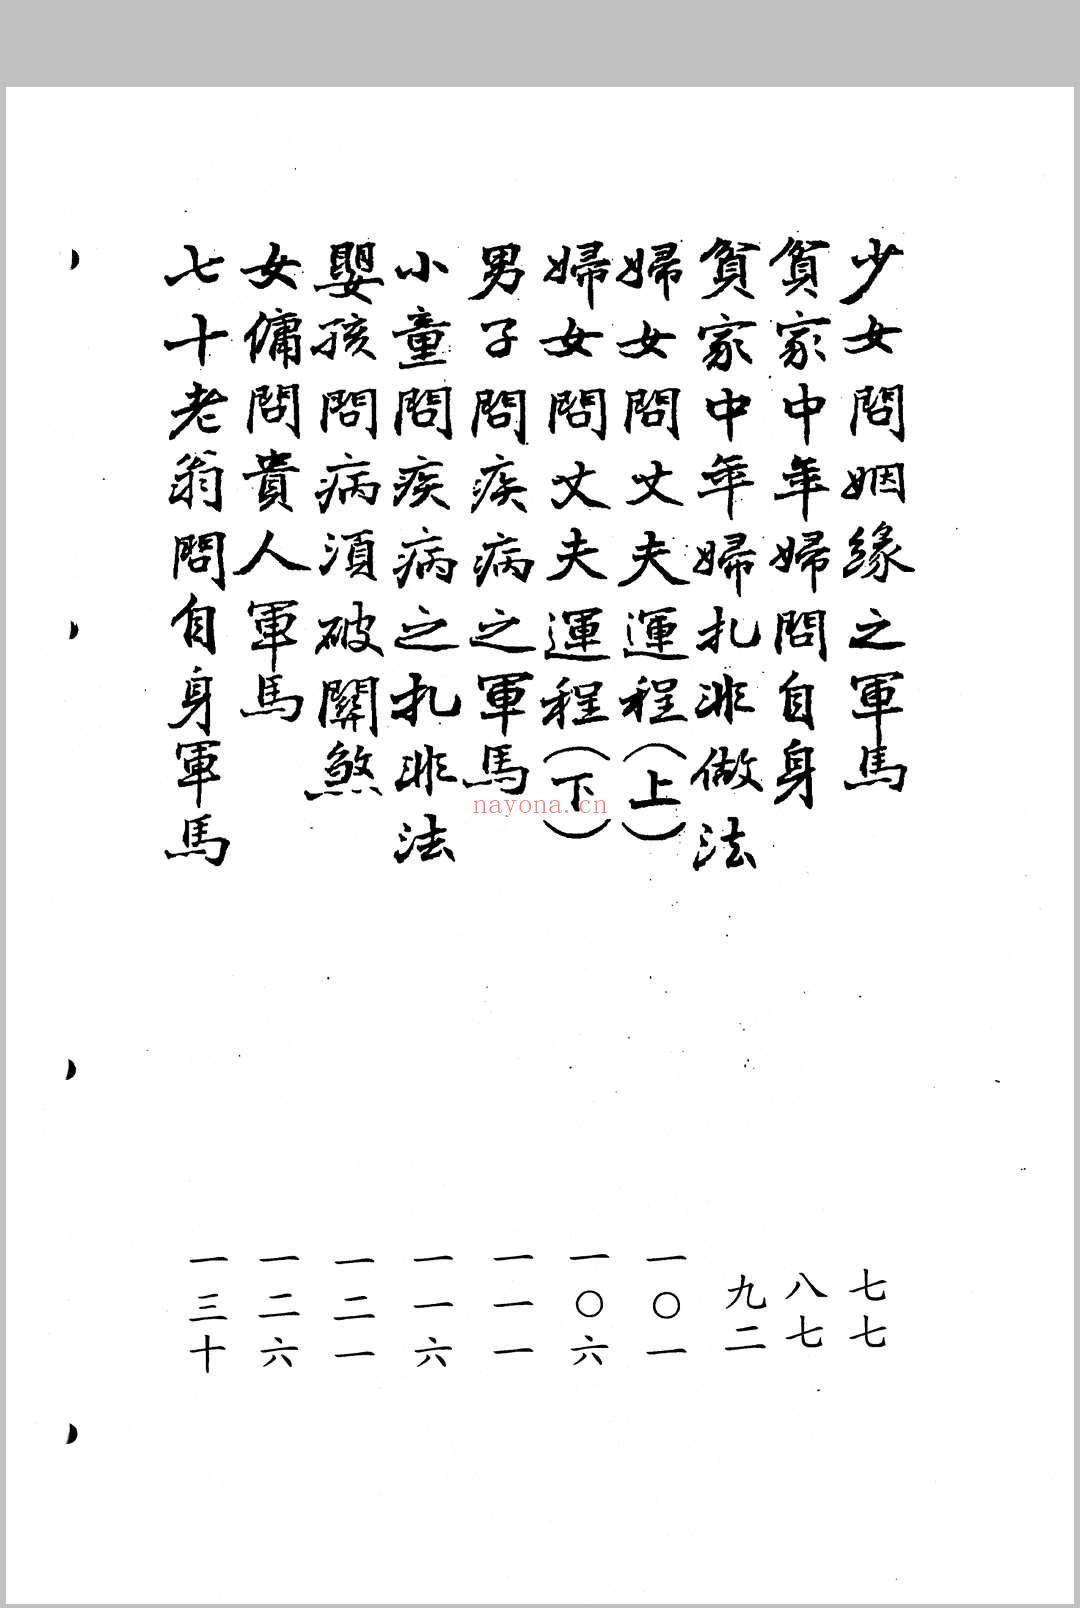 少女問姻緣之軍馬 七七
貧家中年婦問自身 八七
貧家中年婦扎非做法 九二
婦女問丈夫運程(上) 一〇一
婦女問丈夫運程(下) 一〇六
男子問疾病之軍馬 一一一
小童問疾病之扎非法 一一六
嬰孩問病須破關煞 一二一
女傭問貴人軍馬 一二六
七十老翁問自身軍馬 一三十
nayona.cn